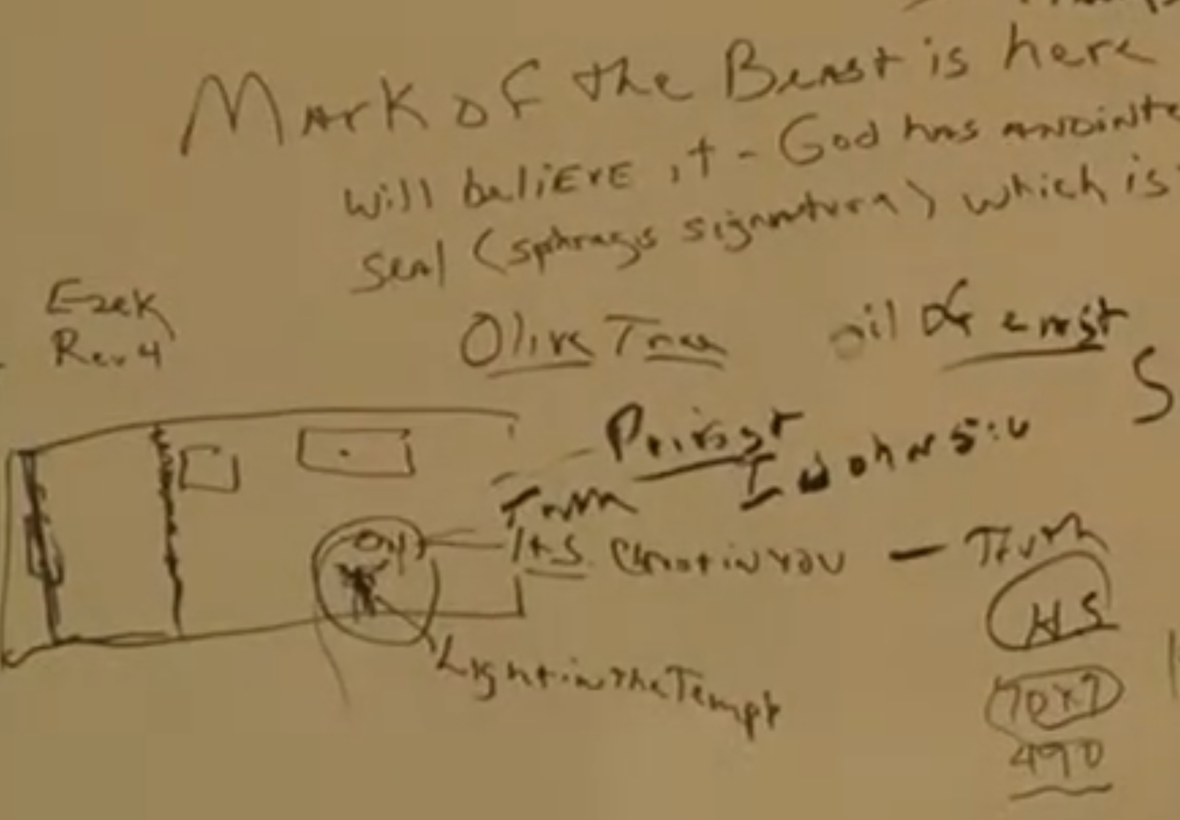 Mark of the Beast is here
will beliEvE it - God has anointe
seal (sphragis signatura) which is
Ezek
Rev 4
Olive Tree oil of
S
Priest
Oil
H.S. Christ in you — Truth
HS
Light in the Temple
70x7
490